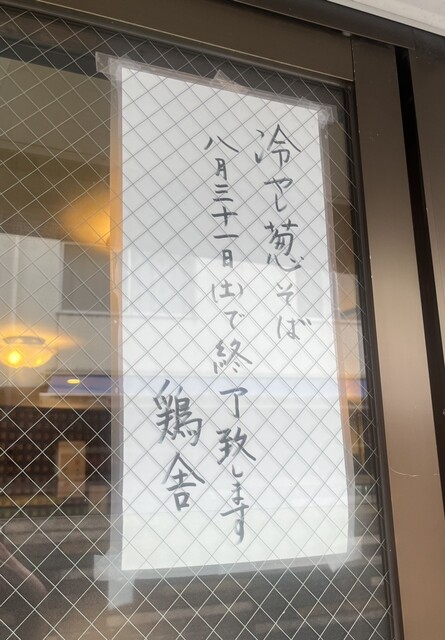 冷やし葱そば
八月三十一日(土)で終了致します
鶏舎